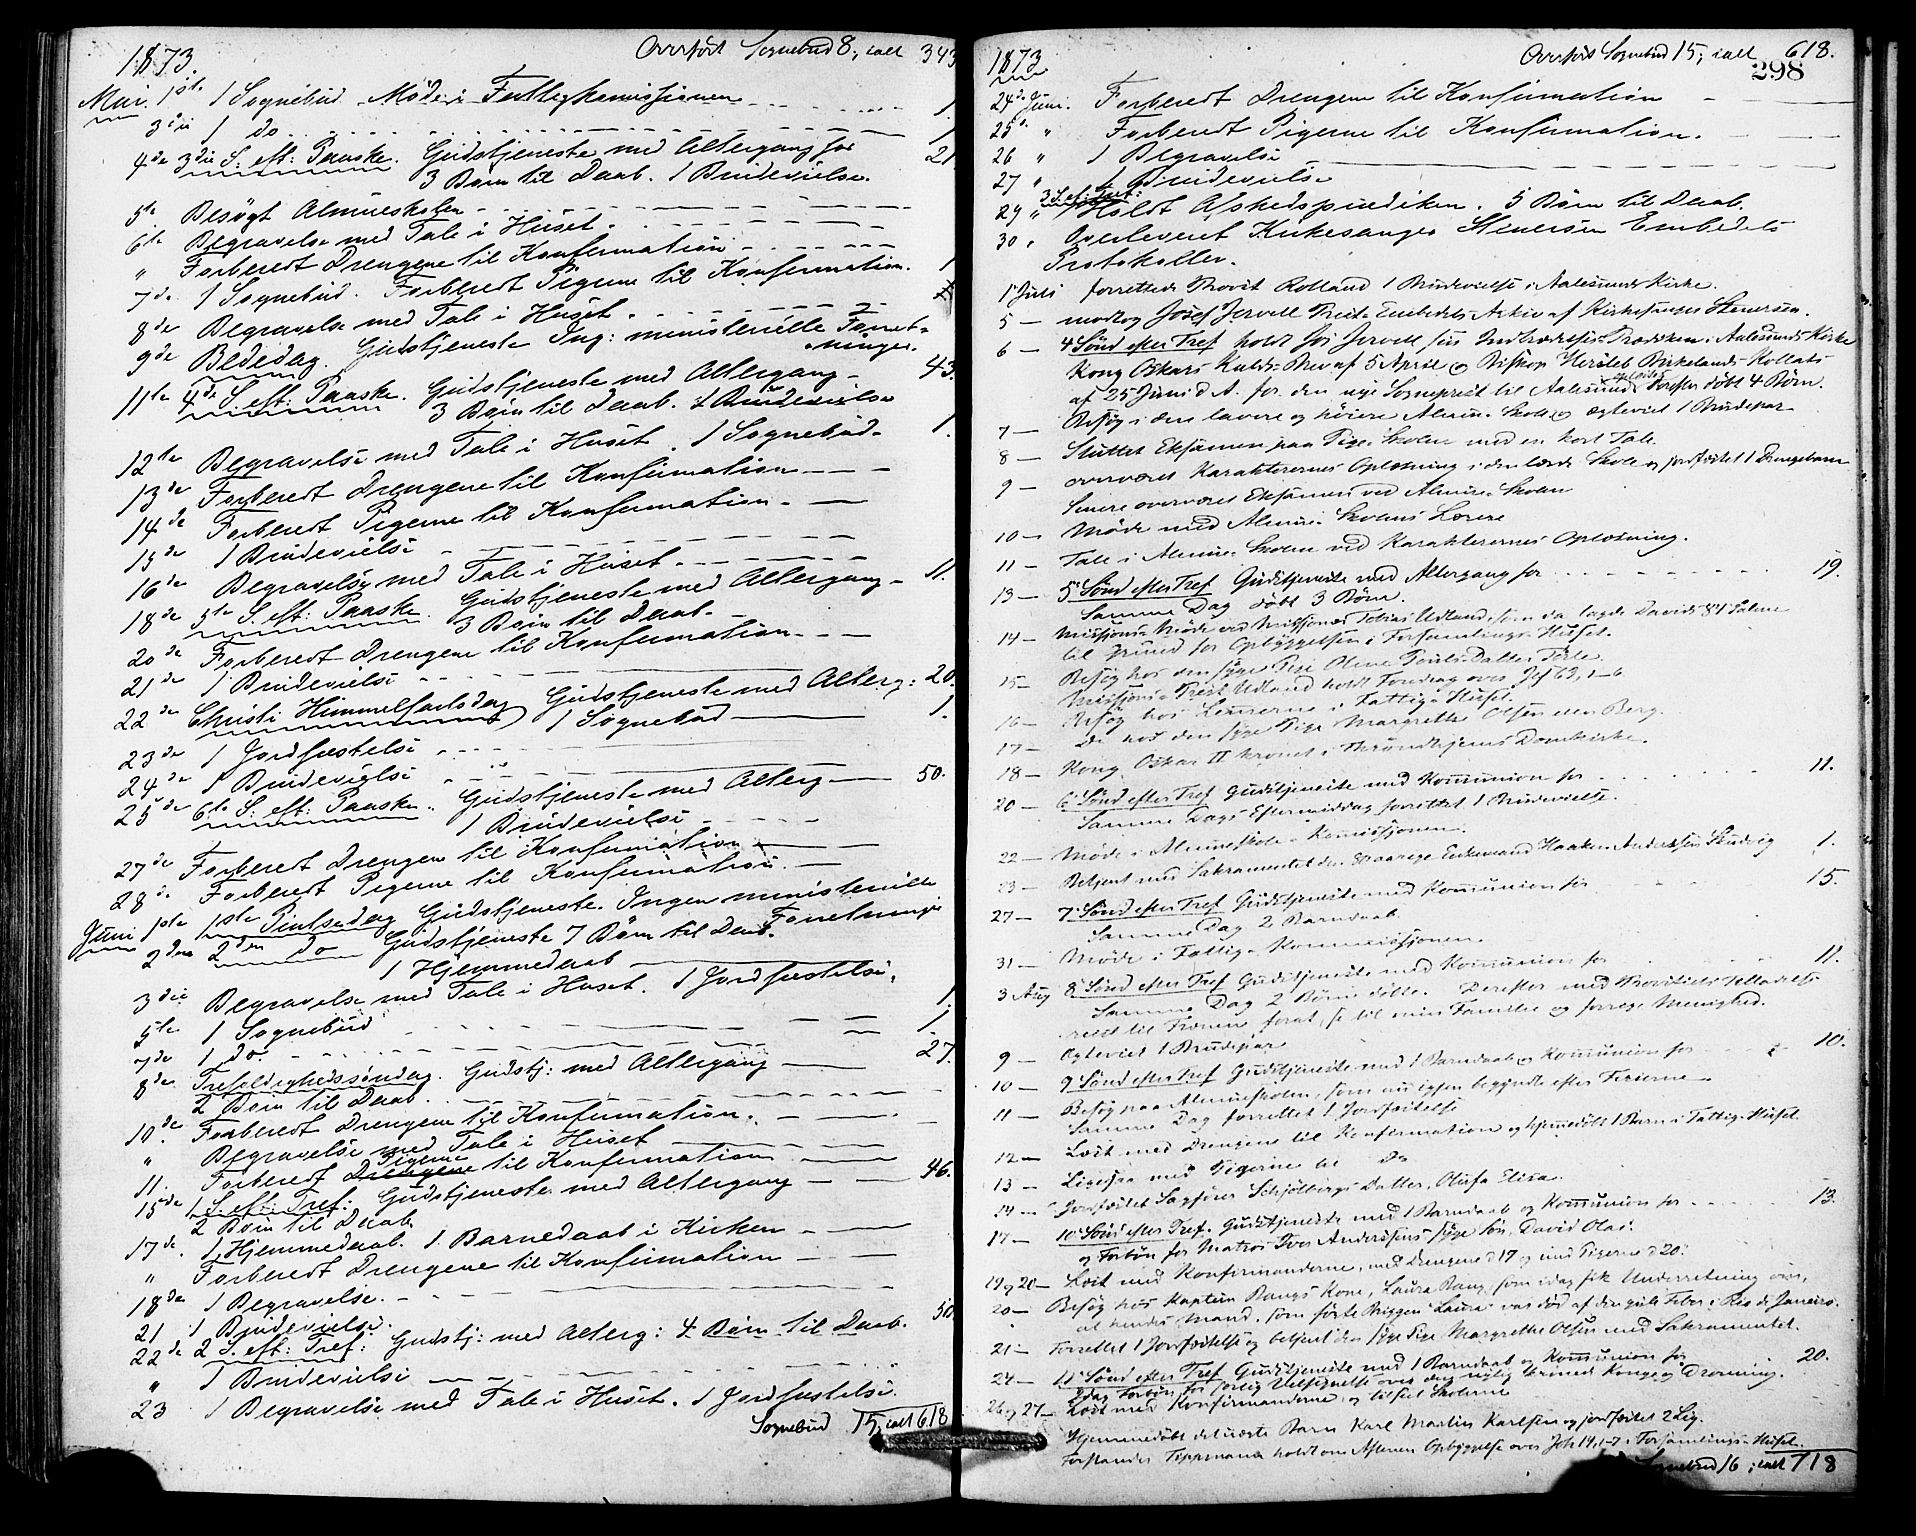 1873. Overført Sognebud 8, ialt 343
Mai. 1ste 1 Sognebud. Møde i Fattigkommissionen 1.
3die 1 do 1
4de 3die S. eft: Paaske. Gudstjeneste med Altergang for 21
3 Børn til Daab. 1 Brudevielse.
5te Besøgt Almueskolen
6te Begravelse med Tale i Huset.
" Forberedt Drengene til Konfirmation
7de 1 Sognebud. Forberedt Pigerne til Konfirmation. 1
8de Begravelse med Tale i Huset.
9de Bededag. Gudstjeneste Ing: ministerielle Forret-
ninger.
11te 4de S. eft: Paaske. Gudstjeneste med Altergang 43.
3 Børn til Daab. 1 Brudevielse
12te Begravelse med Tale i Huset. 1 Sognebud. 1.
13de Forberedt Drengene til Konfirmation
14de Forberedt Pigerne til Konfirmation.
15de 1 Brudevielse
16de Begravelse med Tale i Huset.
18de 5te S. eft: Paaske. Gudstjeneste med Altergang 11.
3 Børn til Daab.
20de Forberedt Drengene til Konfirmation
21de 1 Brudevielse
22de Christi Himmelfartsdag Gudstjeneste med Alterg: 20.
1 Sognebud 1.
23de 1 Jordfæstelse
24de 1 Brudevielse
25de 6te S. eft: Paaske. Gudstjeneste med Alterg 50.
1 Brudevielse
27de Forberedt Drengene til Konfirmation
28de Forberedt Pigerne til Konfirmation
Juni 1ste 1ste Pintsedag Gudstjeneste. Ingen ministerielle
Forretninger
2den 2den do Gudstjeneste 7 Børn til Daab.
1 Hjemmedaab
3die Begravelse med Tale i Huset. 1 Jordfæstelse.
5te 1 Sognebud 1.
7de 1 do. 1.
8de Trefoldighedssøndag. Gudstj: med Altergang 27.
2 Børn til Daab.
10de Forberedt Drengene til Konfirmation.
" Begravelse med Tale i Huset
11. Forberedt Drengene Pigerne til Konfirmation
15de 1 S. eft: Tref: Gudstjeneste med Altergang 46.
2 Børn til Daab
17de 1 Hjemmedaab. 1 Barnedaab i Kirken
" Forberedt Drengene til Konfirmation
18de 1 Begravelse.
21 1 Brudevielse.
22de 2 S. eft: Tref: Gudstj: med Alterg: 4 Børn til Daab. 50.
" 1 Brudevielse
23 1 Begravelse med Tale i Huset. 1 Jordfæstelse.
Sognebud 15, ialt 618
1873 Overført Sognebud 15, ialt 618.
298
24de Juni. Forberedt Drengene til Konfirmation
25 " Forberedt Pigerne til Konfirmation.
26 " 1 Begravelse
27 " 1 Brudevielse
3 S. ef: Tref:
29 " Holdt Afskedsprædiken. 5 Børn til Daab.
30 " Overleveret Kirkesanger Stenersen Embedets
Protokoller.
1 Juli forrettede Provst Rolland 1 Brudevielse i Aalesunds Kirke.
5 — modtog Josef Jervell Præste-Embedets Arkiv af Kirkesanger Stenersen.
6 — 4 Sønd efter Tref holdt Jos Jervell sin Indtrædelses-Prædiken i Aalesunds Kirke
Kong Oskars Kalds-Brev af 5 April og Biskop Hersleb Birkelands Kollats
af 25 Juni d A. for den nye Sognepræst til Aalesund Derefter døbt 4 Børn.
7 — Besøg i den lavere og høiere Almue-Skole og ægteviet 1 Brudepar
8 — Sluttet Eksamen paa Pige-Skolen med en kort Tale.
9 — overværet Karakterernes Oplæsning i den lærde Skole og jordfæstet 1 Drengebarn
Senere overværet Eksamen ved Almue-Skolen
10 — Møde med Almue-Skolens Lærere
11 — Tale i Almue-Skolen ved Karakterernes Oplæsning.
13 — 5 Sønd efter Tref Gudstjeneste med Altergang for 19.
Samme Dag døbt 3 Børn.
14 — Missions-Møde ved Missionær Tobias Udland, som da lagde Davids 84 Salme
til Grund for Opbyggelsen i Forsamlings-Huset.
15 — Besøg hos den syge Pige Oline Pouls-Datter
Missions-Præst Udland holdt Foredrag over Jes 63, 1-6
16 — Besøg hos Lemmerne i Fattig-Huset
17 — Do hos den syge Pige Margrethe Olsen Berg.
18 — Kong Oskar II kronet i Throndhjems Domkirke.
20 — 6 Sønd efter Tref Gudstjeneste med Kommunion for 11.
Samme Dags Eftermiddag forrettet 1 Brudevielse.
22 — Møde i Almueskole-Kommissionen.
23 — Betjent med Sakramentet den aarige Enkemand Haaken Anderssen 1.
27 — 7 Sønd efter Tref Gudstjeneste med Kommunion for 15.
Samme Dag 2 Barnedaab.
31 — Møde i Fattig-Kommissionen.
3 Aug 8 Sønd efter Tref Gudstjeneste med Kommunion for 11.
Samme Dag 2 Børn døbte. Derefter med Provstiets Tilladelse
reist til for at se til min Familie og forrige Menighed.
9 — Ægteviet 1 Brudepar
10 — 9 Sønd efter Tref Gudstjeneste med 1 Barnedaab og Kommunion for 10.
11 — Besøg paa Almueskolen, som nu igjen begyndte efter Ferierne
Samme Dag forrettet 1 Jordfæstelse
12 — Læst med Drengene til Konfirmation og hjemmedøbt 1 Barn i Fattig-Huset
13 — Ligesaa med Pigerne til do
14 — Jordfæstet Sagfører Schjølbergs Datter, Olufa Elisa.
17 — 10 Sønd efter Tref. Gudstjeneste med 1 Barnedaab og Kommunion for 13.
og Forbøn for Matros Iver Anderssens syge Søn, David Olai.
19 og 20 — Læst med Konfirmanderne, med Drengene d 17 og med Pigerne d 20.
20 — Besøg hos Kaptein Bangs Kone, Laura Bang, som idag fik Underretning om,
at hendes Mand, som førte Briggen "Laura" var død af den gule Feber i Rio de Janeiro.
21 — Forrettet 1 Jordfæstelse og betjent den syge Pige Margrethe Olsen med Sakramentet.
24 — 11 Sønd efter Tref Gudstjeneste med 1 Barnedaab og Kommunion for 20.
Idag Forbøn for over den nylig kronede Konge og Dronning.
26 og 27 — Læst med Konfirmanderne og tilseet Skolerne
Hjemmedøbt det Barn Karl Martin Karlsen og jordfæstet 2 Lig.
Forstander Tippmana holdt om Aftenen Opbyggelse over Joh 19, 1-7 i Forsamlings-Huset.
Sognebud 16, ialt 718